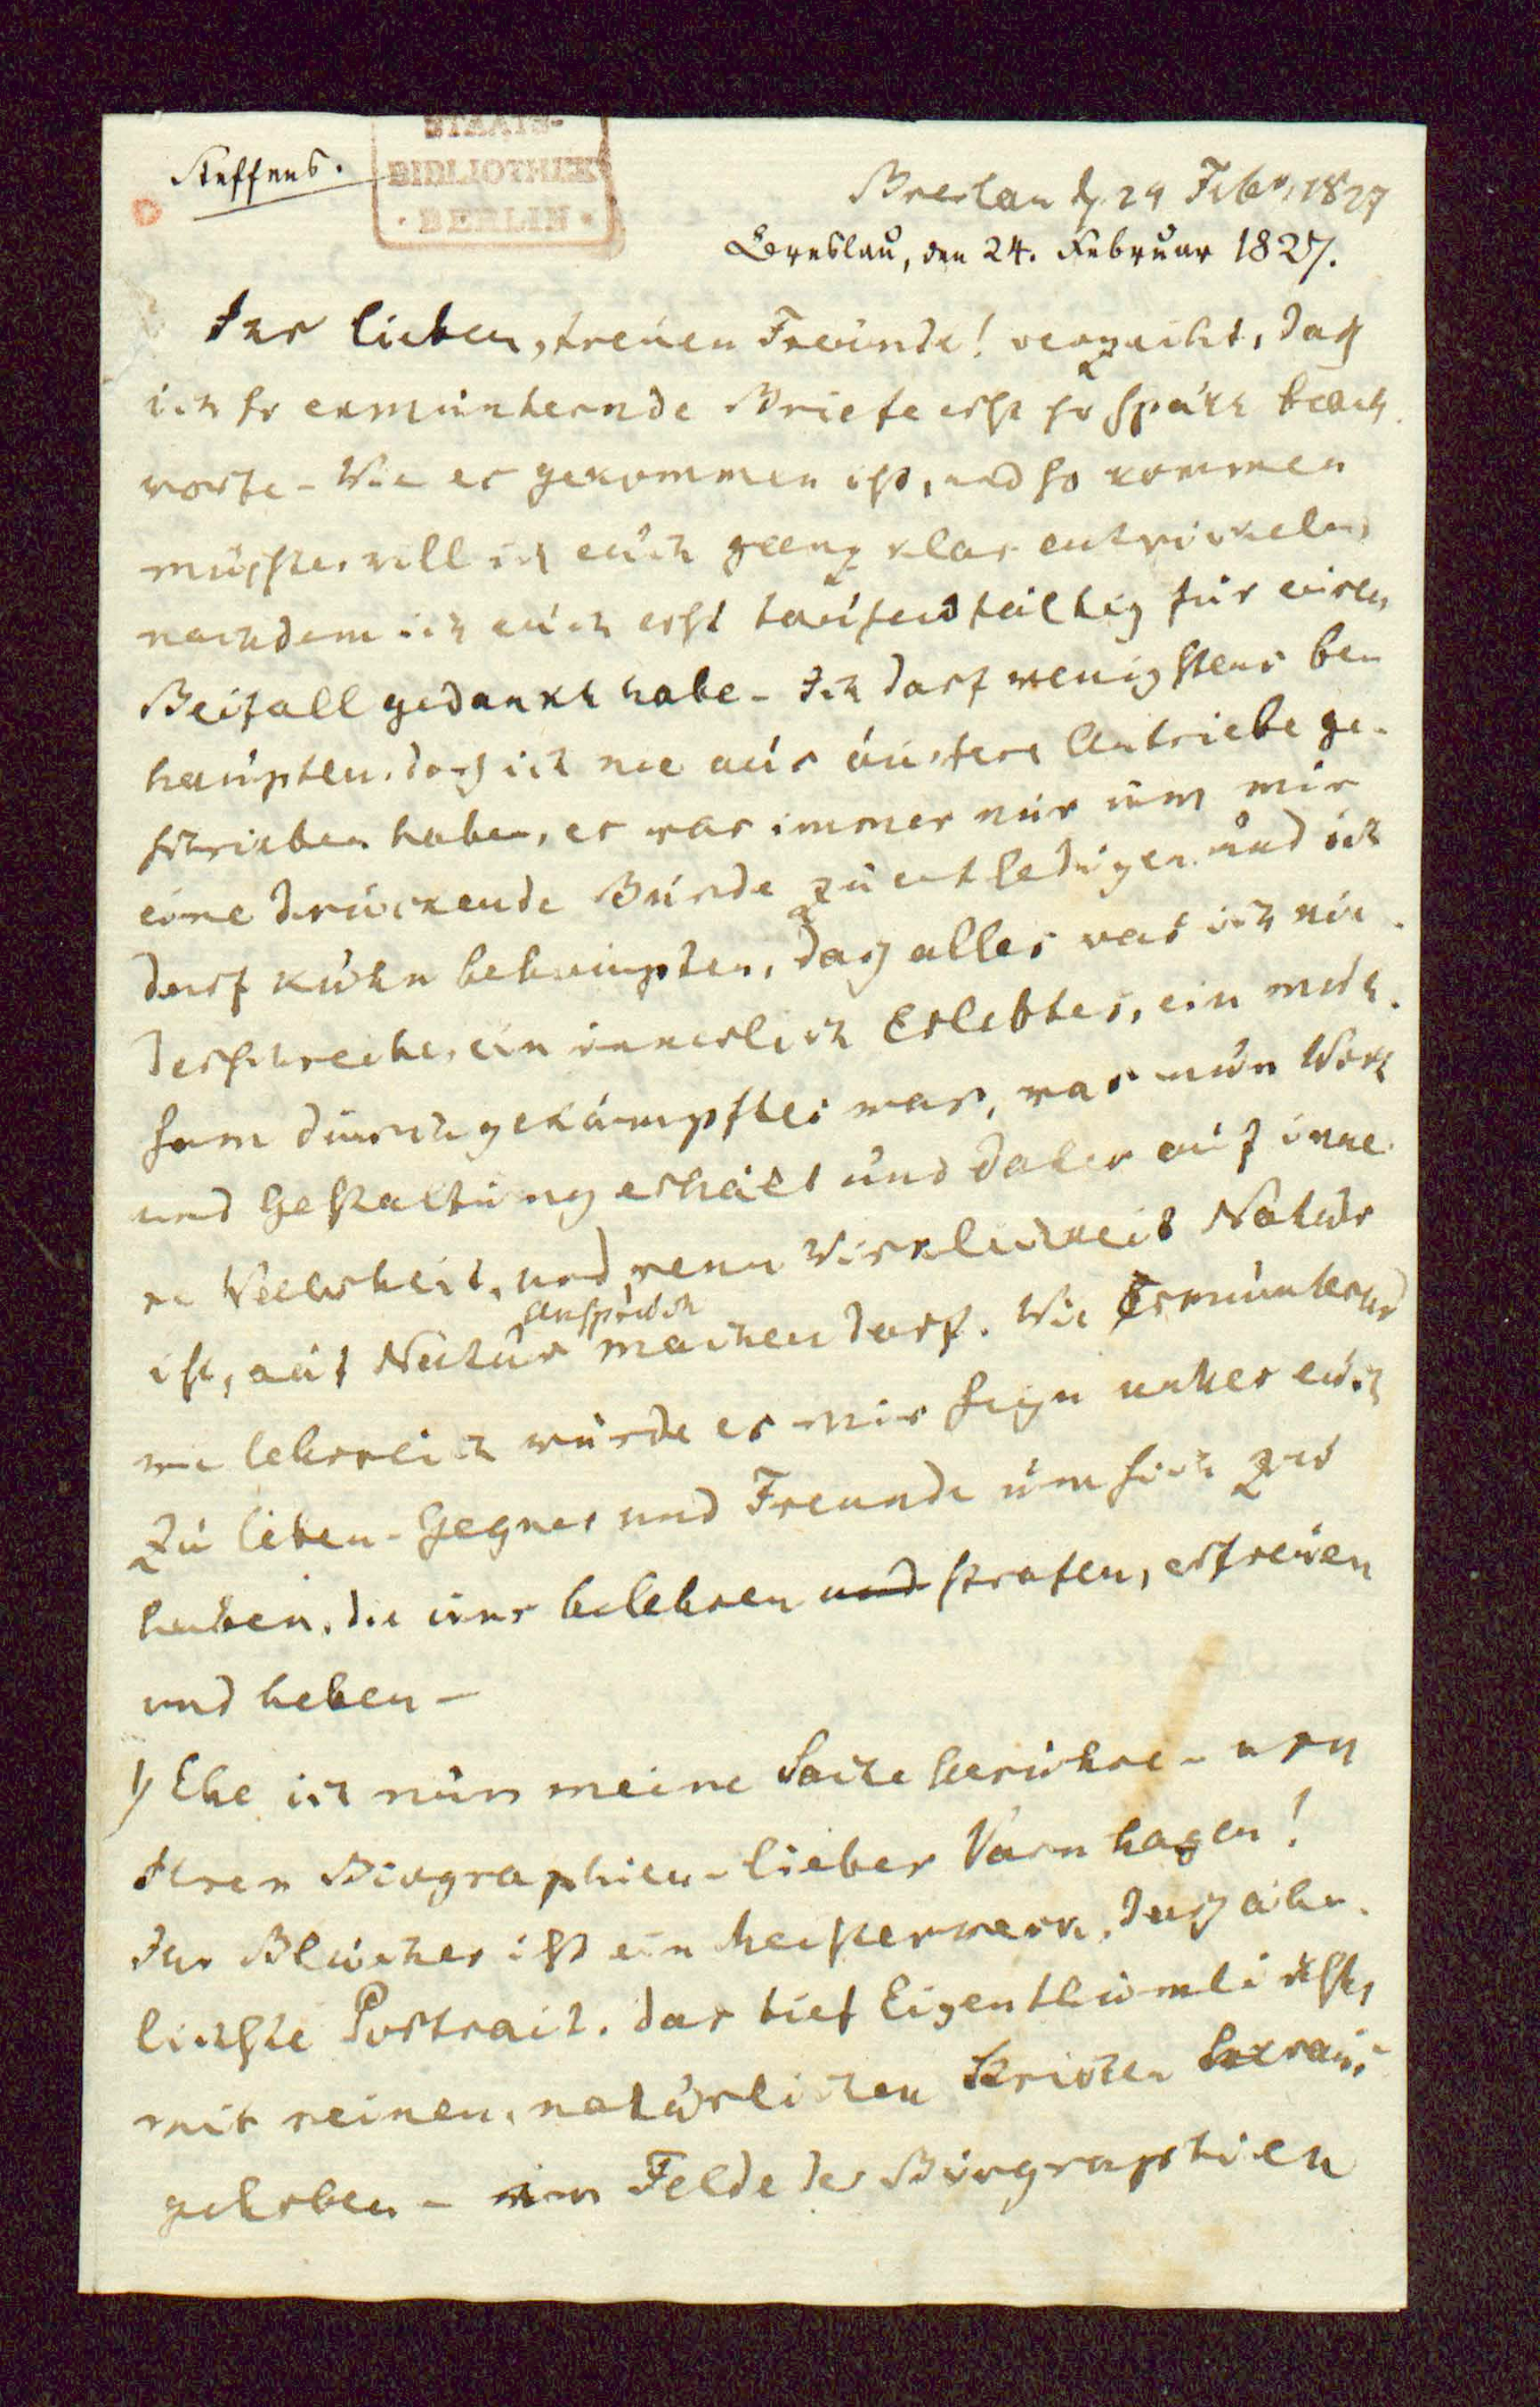 Steffens.
STAATS-
BIBLIOTHEK
· BERLIN ·
Breslau d 24 Febr, 1827
Breslau, den 24. Februar 1827.
Ihr lieben, treuen Freunde! verzeiht, daß
ich so ermunternde Briefe erst so spät beant
worte – Wie es gekommen ist, und so kommen
müßte, will ich euch ganz klar entwickeln,
nachdem ich euch erst tausendfältig für euren
Beifall gedankt habe – Ich darf wenigstens be
haupten, daß ich nie aus äußere Antriebe ge-
schrieben habe, es war immer nur um mir
eine drückende Bürde zu entledigen und ich
darf kühn behaupten, daß alles was ich nie
derschreibe, ein innerlich Erlebtes, ein müh
sam durchgekämpftes war, was nun Wort
und Gestaltung erhält und daher auf inne
re Wahrheit, und, wenn Wirklichkeit Natur
ist, auf Natur Anspruch machen darf. Wie Ermunternd
wie lehrreich würde es mir seyn unter euch
zu leben – Gegner und Freunde um sich zu
haben, die uns belehren und strafen, erfreuen
und heben –
1) Ehe ich nun meine Sache berühre – von
Ihren Biographien – lieber Varnhagen!
Ihr Blücher ist ein Meisterwerk, das ähn
lichste Portrait, das tief Eigenthümlichste,
mit reinen, natürlichen Strichen heraus
gehoben – im Felde der Biographien